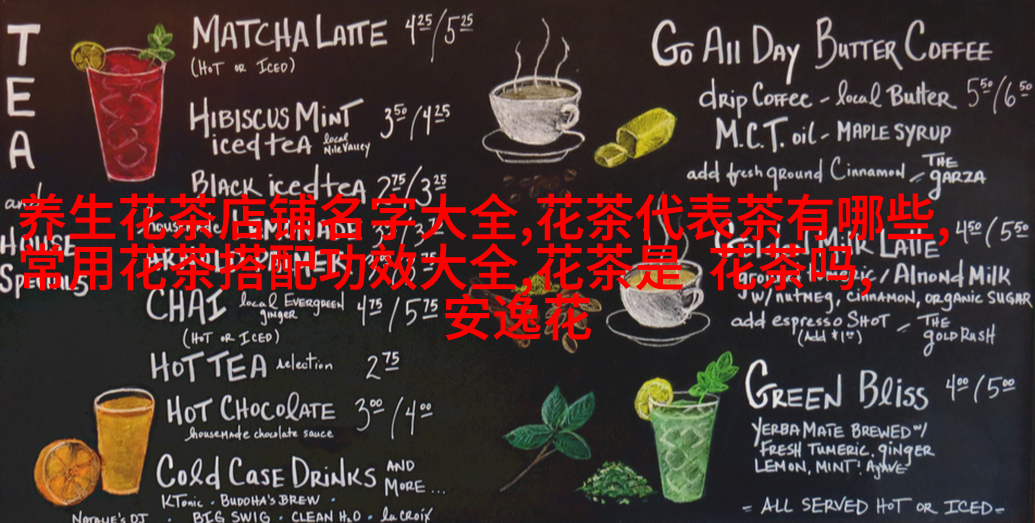 TEA
and
HOUSE
Specials
MATCHA LATTE 4.25/5.25
(HOT OR ICED)
HIBISCUS MINT
iced tea local Nile Valley 3.50/4.25
BLACK iced tea 2.75/3.25
housemade LEMONADE
ARNOLD PALMER
CHAI local EVERGREEN ginger 4.75/5.75
(HOT OR ICED)
HOT TEA selection 2.75
HOT CHOCOLATE 3.00/4.00
housemade chocolate sauce
Cold Case DRINKS AND MORE...
KTonic · BUDDHA'S BREW ·
BIG SWIG · CLEAN H2O · la CROIX
GO ALL DAY BUTTER COFFEE
drip Coffee - local Butter 5.50/6.50
M.C.T. oil - MAPLE SYRUP
add fresh ground Cinnamon - THE GARZA
MILK LATTE 4.50/5.50
/ Almond MILK
w/ nutmeg, cinnamon, ORGANIC SUGAR
add espresso SHOT - THE GOLD RUSH
(Add $1.00)
GREEN BLISS 4.00/5.00
YERBA MATE BREWED w/
FRESH TUMERIC, GINGER
LEMON, MINT! Agave
- ALL SERVED HOT OR ICED -
养生花茶店铺名字大全,花茶代表茶有哪些,
常用花茶搭配功效大全,花茶是 花茶吗,
安逸花